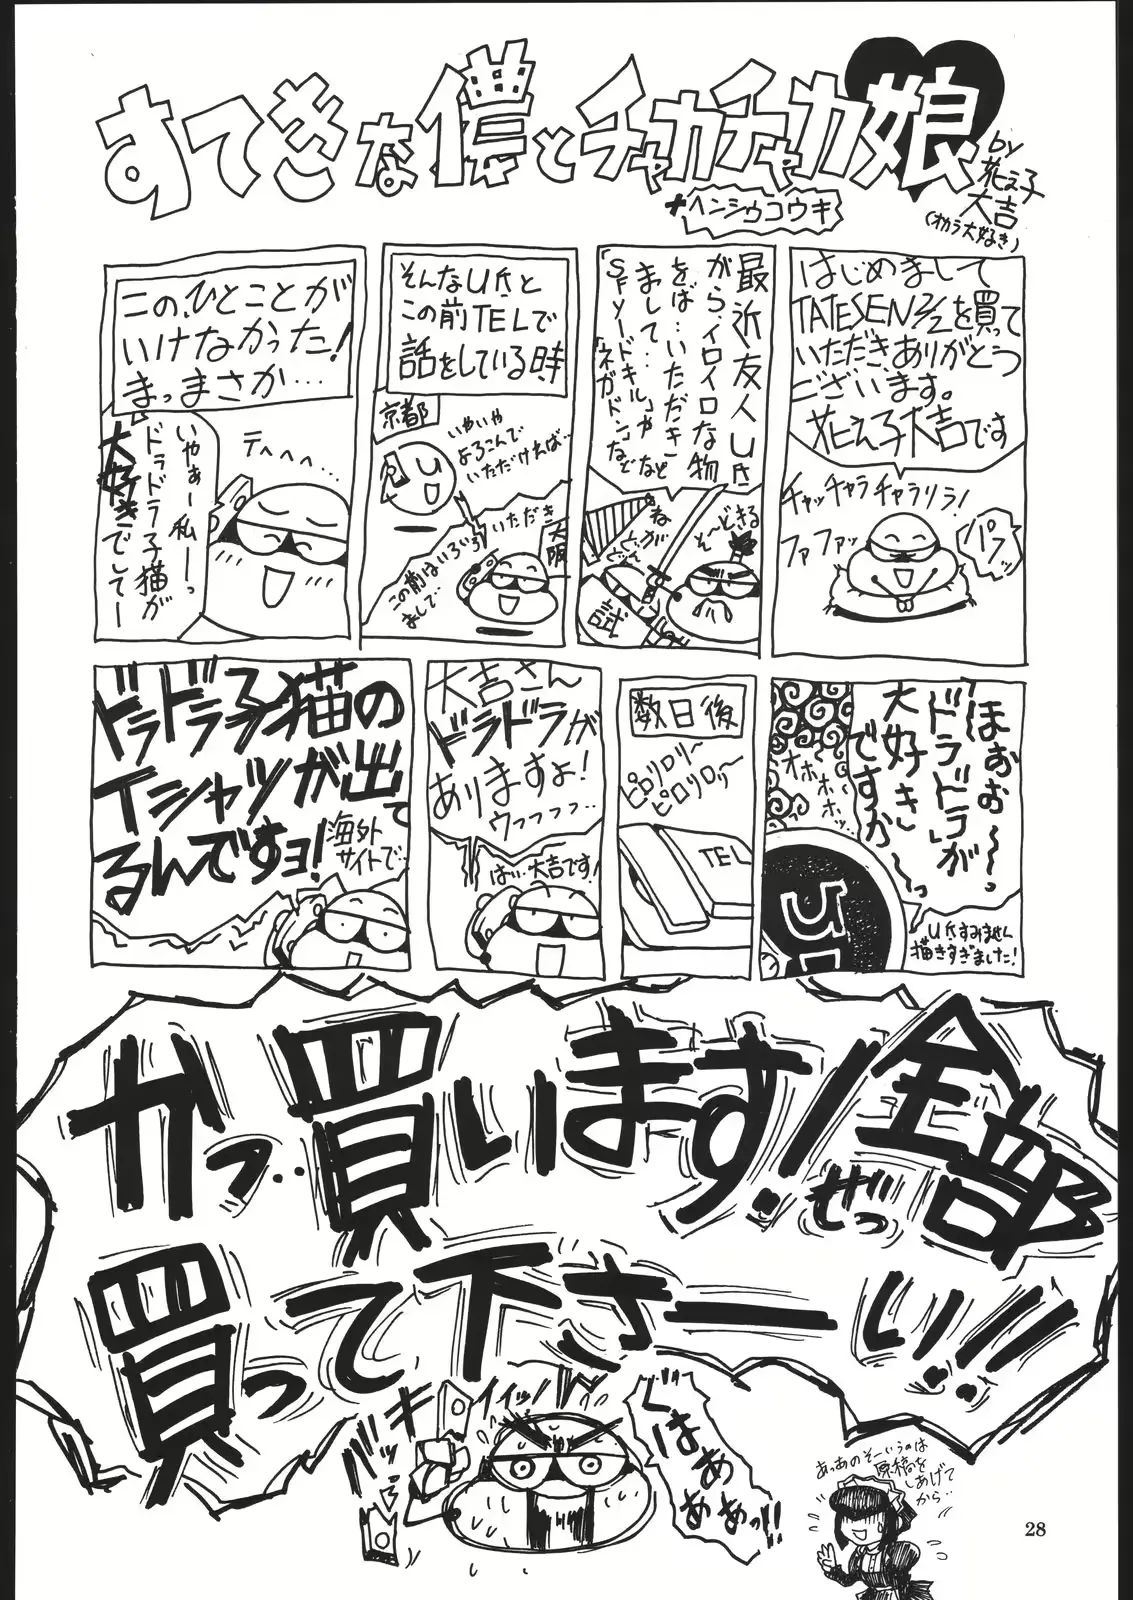 すてきな僕とチャカチャカ娘
+ヘンシウコウキ
by
花え子
大吉
(オカラ大好き)
はじめまして
TATESEN2/2を買って
いただき、ありがとう
ございます。
花え子大吉です
チャッチャラチャラリラ!
ファファッ
パフッ
最近友人U氏
がらイロイロな物
をば…いただき
まして…
「SFソードキル」や
「ネガドン」など
など
そ~どきる
ねがどん
試
そんなU氏と
この前TELで
話をしている時、
京都
U
いやいや
よろこんで
いただければ…
大阪
この前はいろいろいただき
まして…
この、ひとことが
いけなかった!
まっまさか…
テヘヘ…
いやぁー私ーっ
ドラドラ子猫が
大好きでしてー
ほぉぉ~~っ
「ドラドラ」が
大好き
ですか~っ
オホホホホッ…
U氏すみません
描きすぎました!
数日後
ピロリロリ~
ピロリロリ~
TEL
大吉さん
ドラドラが
ありますよ!
ウフフフフ…
はい…大吉です!
ドラドラ子猫の
Tシャツが出て
るんですョ!
海外
サイトで…
かっ…買います!全部
ぜっ
買って下さーい!!
バキバキッ
イイッ!
ぐはぁぁぁぁっ!!
あっあのそーいうのは
原稿を
しあげて
から…
28